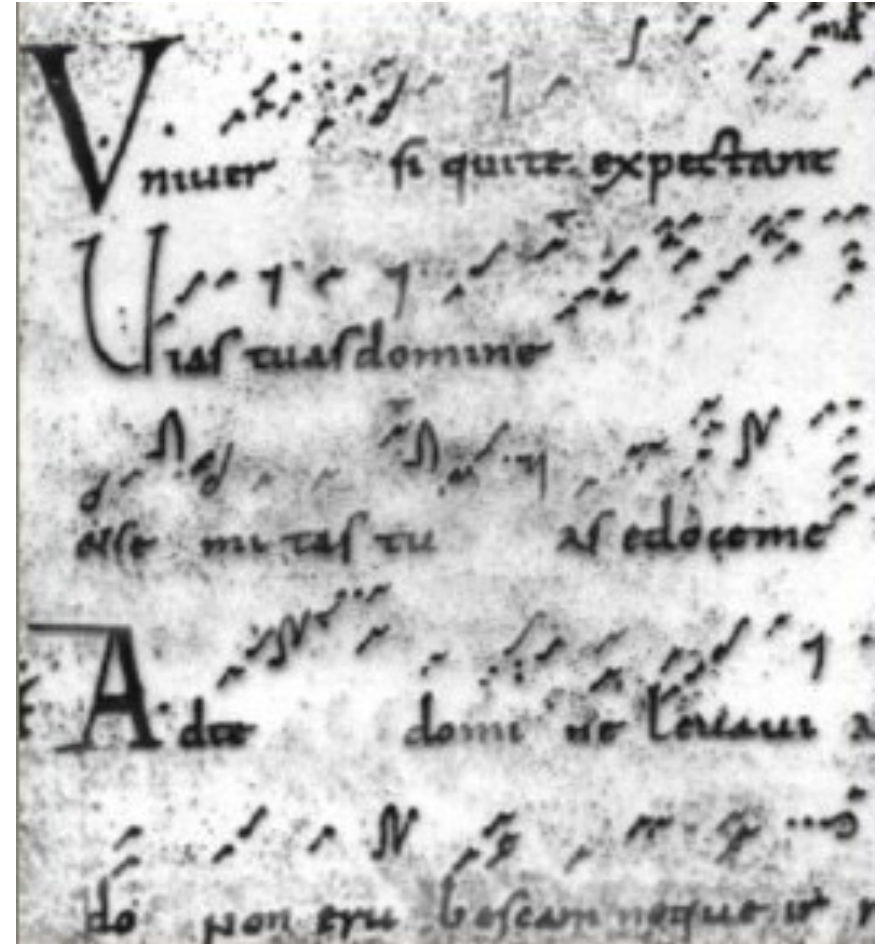 Vniuer si quite expectant
Uias tuas domine
etse mi tas tu as edoceme
Adte domi ne leuaui a
do non eru bescam neque ir